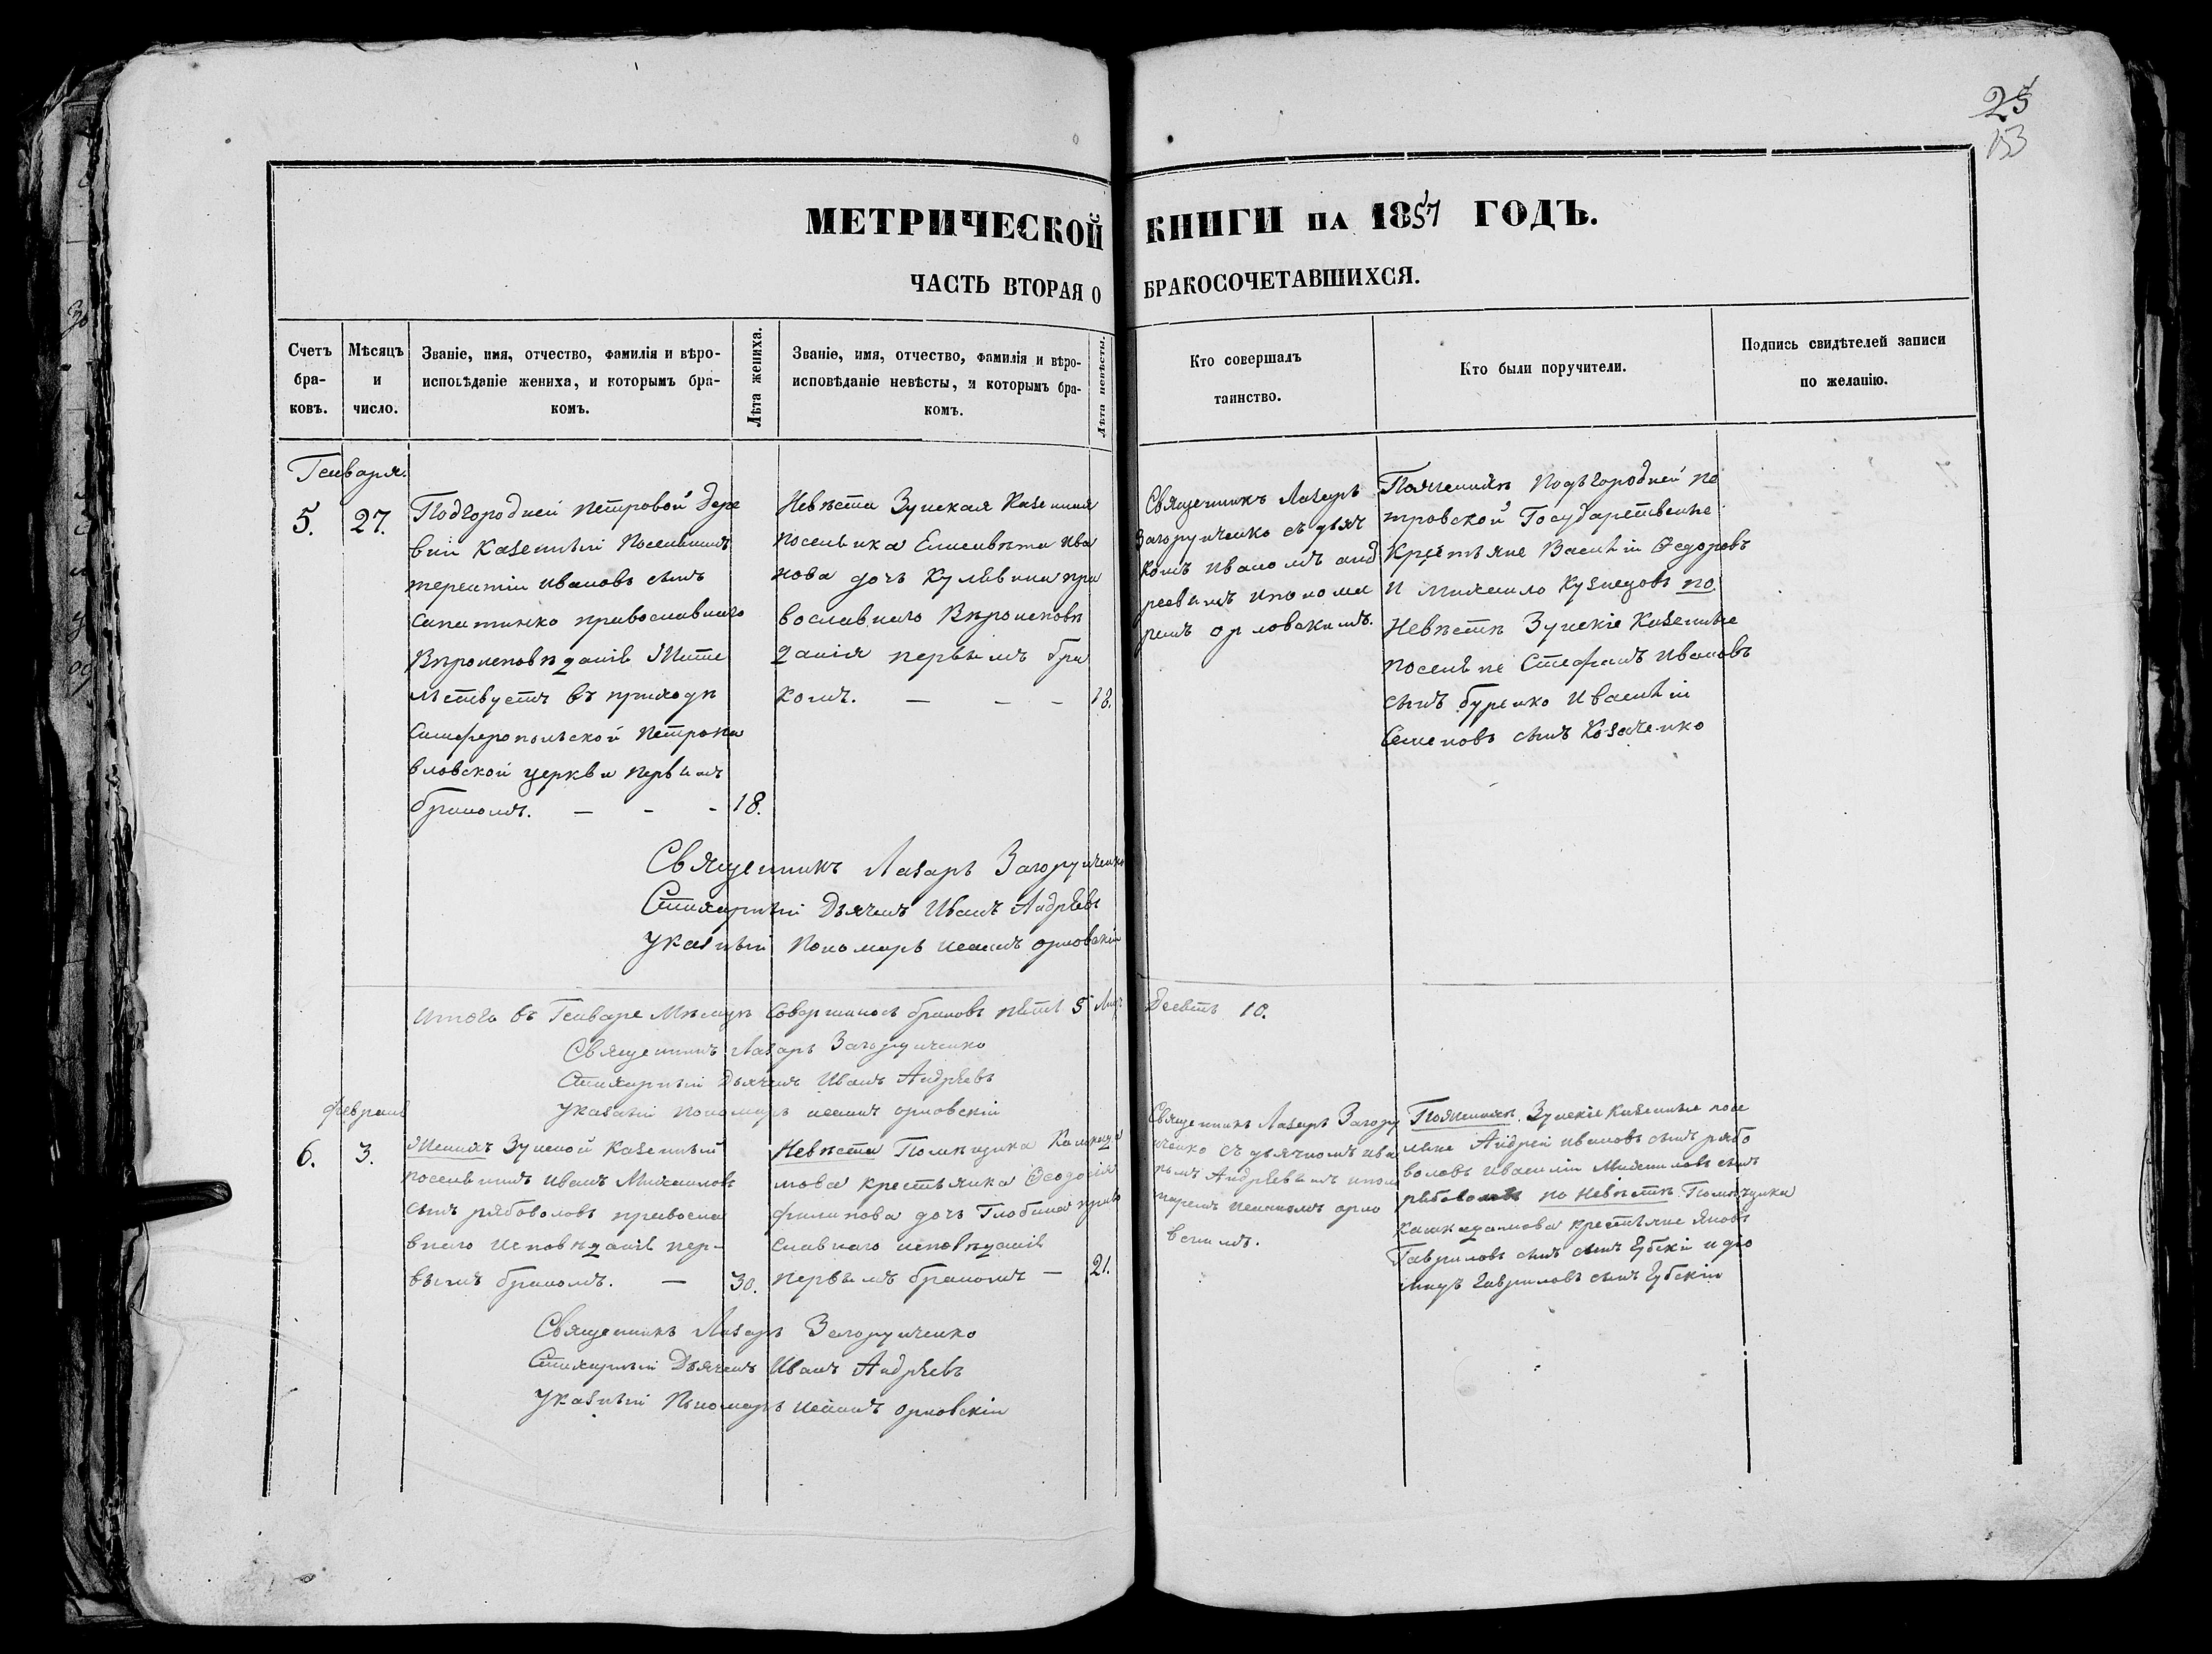 25
153
МЕТРИЧЕСКОЙ КНИГИ НА 1857 ГОДЪ.
ЧАСТЬ ВТОРАЯ О БРАКОСОЧЕТАВШИХСЯ.
Счетъ бра-
ковъ.
Мѣсяцъ
и
число.
Званіе, имя, отчество, фамилія и вѣро-
исповѣданіе жениха, и которымъ бра-
комъ.
Лѣта жениха.
Званіе, имя, отчество, фамилія и вѣро-
исповѣданіе невѣсты, и которымъ бра-
комъ.
Лѣта невѣсты.
Кто совершалъ
таинство.
Кто были поручители.
Подпись свидѣтелей записи
по желанію.
Генваря.
5.
27.
Подгородней Петровой дере
вни Казенный Поселянинъ
терентій Ивановъ сынъ
православнаго
Вѣроисповѣданія Жите
льствуетъ въ приходѣ
Симферопольской Петропа
вловской церкви первымъ
бракомъ. — - - 18.
Невѣста Зуйская Казенная
поселянка Елисавета Ива
нова дочь пра
вославнаго Вѣроисповѣ
данія первымъ бра
комъ. — - - 18.
Священникъ Лазарь
Загоруйченко съ дьяч
комъ Иваномъ анд
реевымъ ипонома
ремъ орловскимъ.
Поженихѣ Подъгородней Пе
тровской Государственные
Крестьяне Василій Ѳедоровъ
и михаило Кузнецовъ по
Невѣстѣ Зуйскіе Казенные
поселяне Стефанъ Ивановъ
сынъ буренко Ивасилій
Семеновъ сынъ Козаченко
Священникъ Лазарь Загоруйченко
Стихарный Дьячекъ Иванъ Андрѣевъ
Указный Пономарь орловскій
Итого въ Генварѣ Мѣсяцѣ Совершилось браковъ пять 5 лицъ Десять 10.
Священникъ Лазарь Загоруйченко
Стихарный Дьячекъ Иванъ Андрѣевъ
Указный пономарь орловскій
Февраля
6.
3.
Женихъ Зуйской Казенный
поселянинъ Иванъ Михаиловъ
сынъ рябоволовъ правосла
внаго Исповѣданія пер-
вымъ бракомъ. — 30.
Невѣста Помѣщика
мова крестьянка Ѳеодосія
филипова дочь Глобина право
славнаго исповѣданія
первымъ бракомъ — 21.
Священникъ Лазарь Загору
йченко съ дьячкомъ Ива
номъ Андрѣевымъ ипоно
маремъ орло
вскимъ.
Поженихѣ Зуйскіе Казенные посе
ляне Андрей Ивановъ сынъ рябо
воловъ Ивасилій Михаиловъ сынъ
по Невѣстѣ Помѣщика
крестьяне Яковъ
Гавриловъ сынъ сынъ Губскій идіо
мидъ Гавриловъ сынъ Губскій
Священникъ Лазарь Загоруйченко
Стихарный Дьячекъ Иванъ Андрѣевъ
Указный Пономарь орловскій